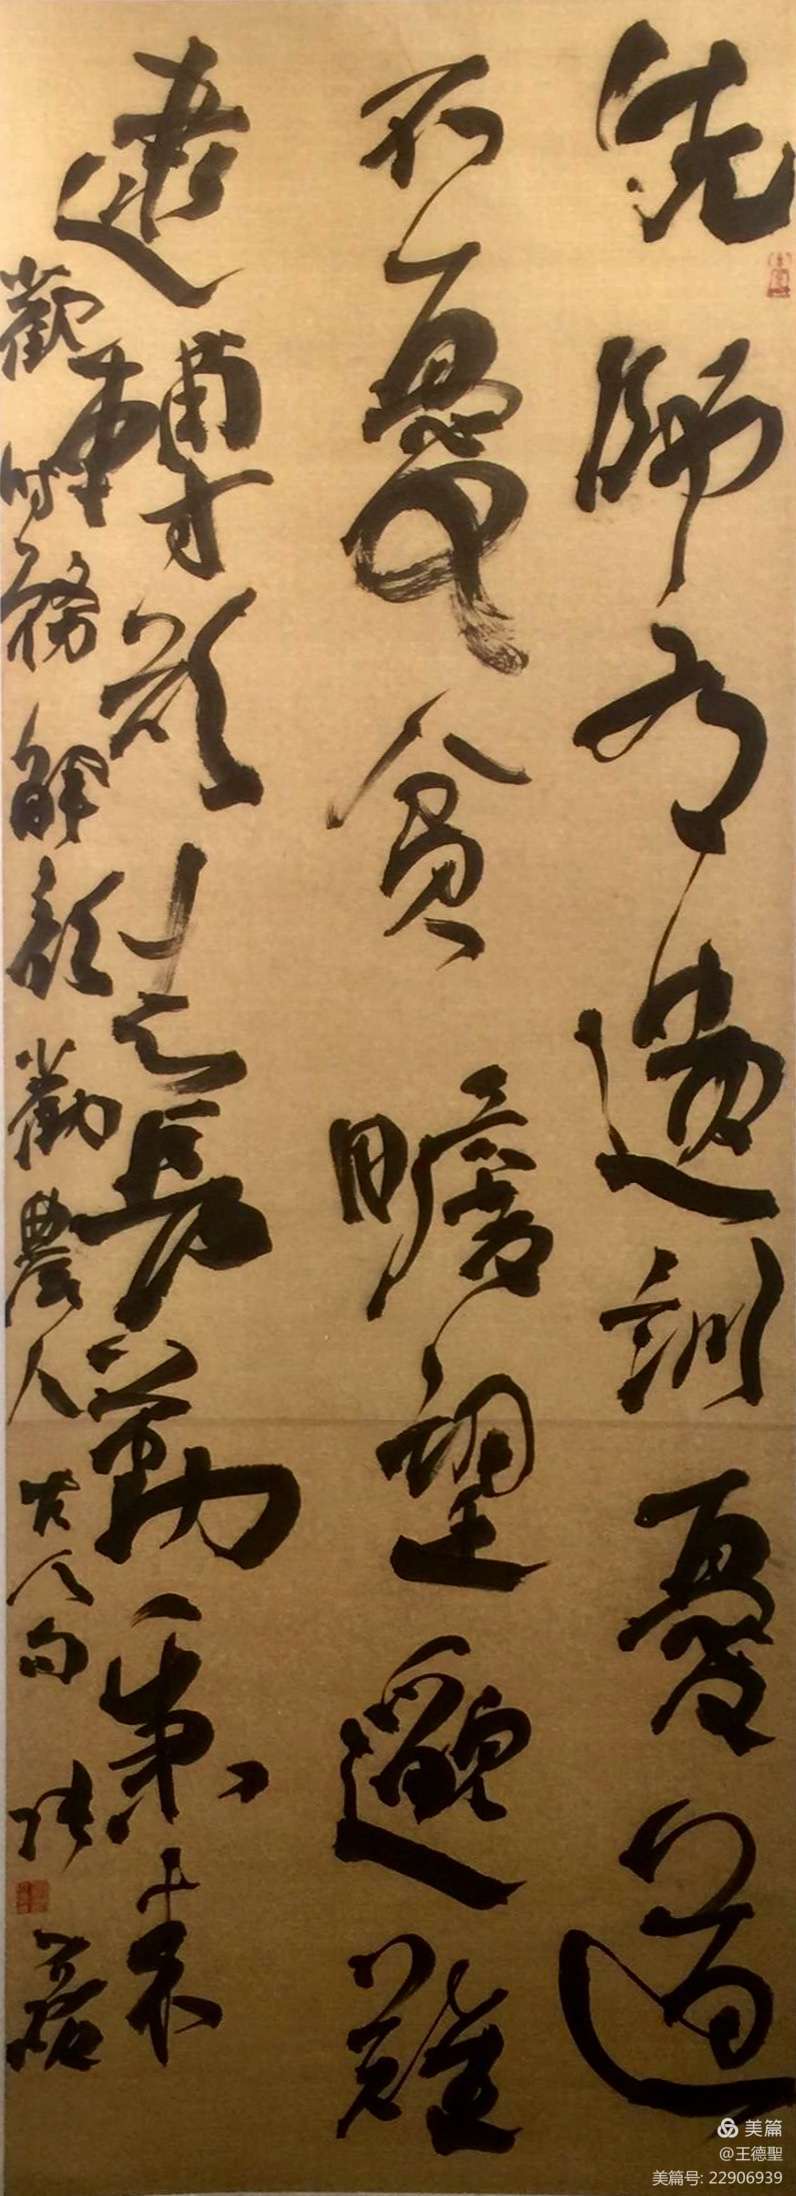 先師有遺訓憂道
不憂貧瞻望邈難
逮轉欲志長勤秉耒
歡時務解顏勸農人古人句
美篇
@王德聖
美篇号: 22906939